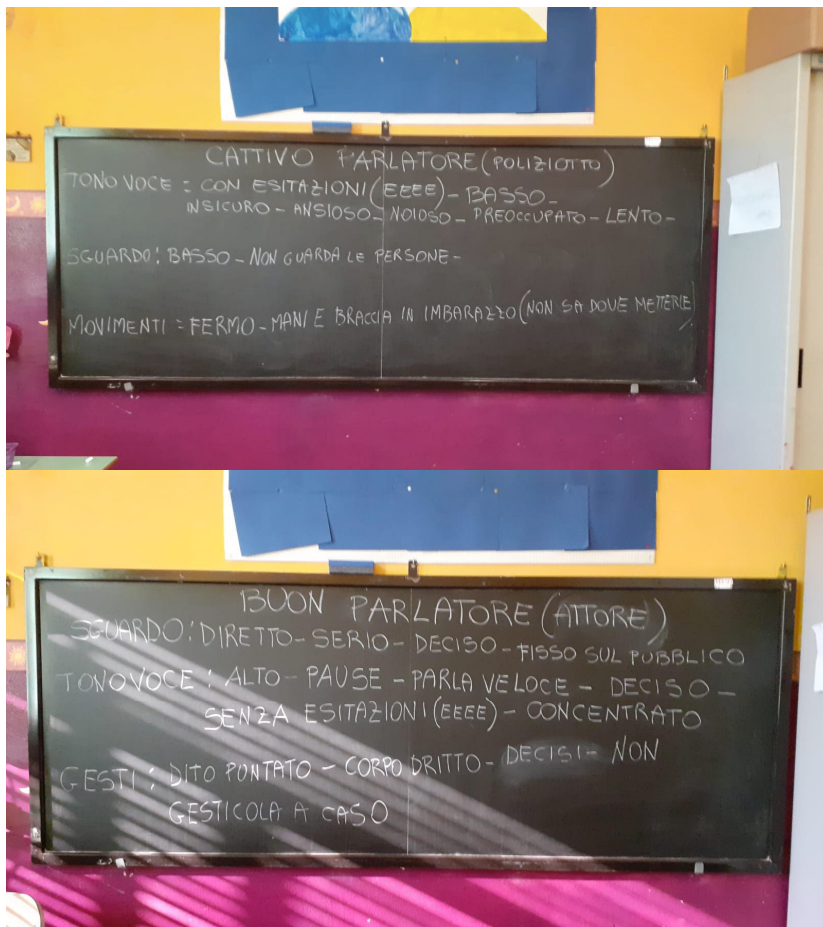 CATTIVO PARLATORE (POLIZIOTTO)
TONO VOCE = CON ESITAZIONI (EEEE) - BASSO -
INSICURO - ANSIOSO - NOIOSO - PREOCCUPATO - LENTO -
SGUARDO: BASSO - NON GUARDA LE PERSONE -
MOVIMENTI = FERMO - MANI E BRACCIA IN IMBARAZZO (NON SA DOVE METTERLE)
BUON PARLATORE (ATTORE)
SGUARDO: DIRETTO - SERIO - DECISO - FISSO SUL PUBBLICO
TONO VOCE: ALTO - PAUSE - PARLA VELOCE - DECISO -
SENZA ESITAZIONI (EEEE) - CONCENTRATO
GESTI: DITO PUNTATO - CORPO DRITTO - DECISI - NON
GESTICOLA A CASO